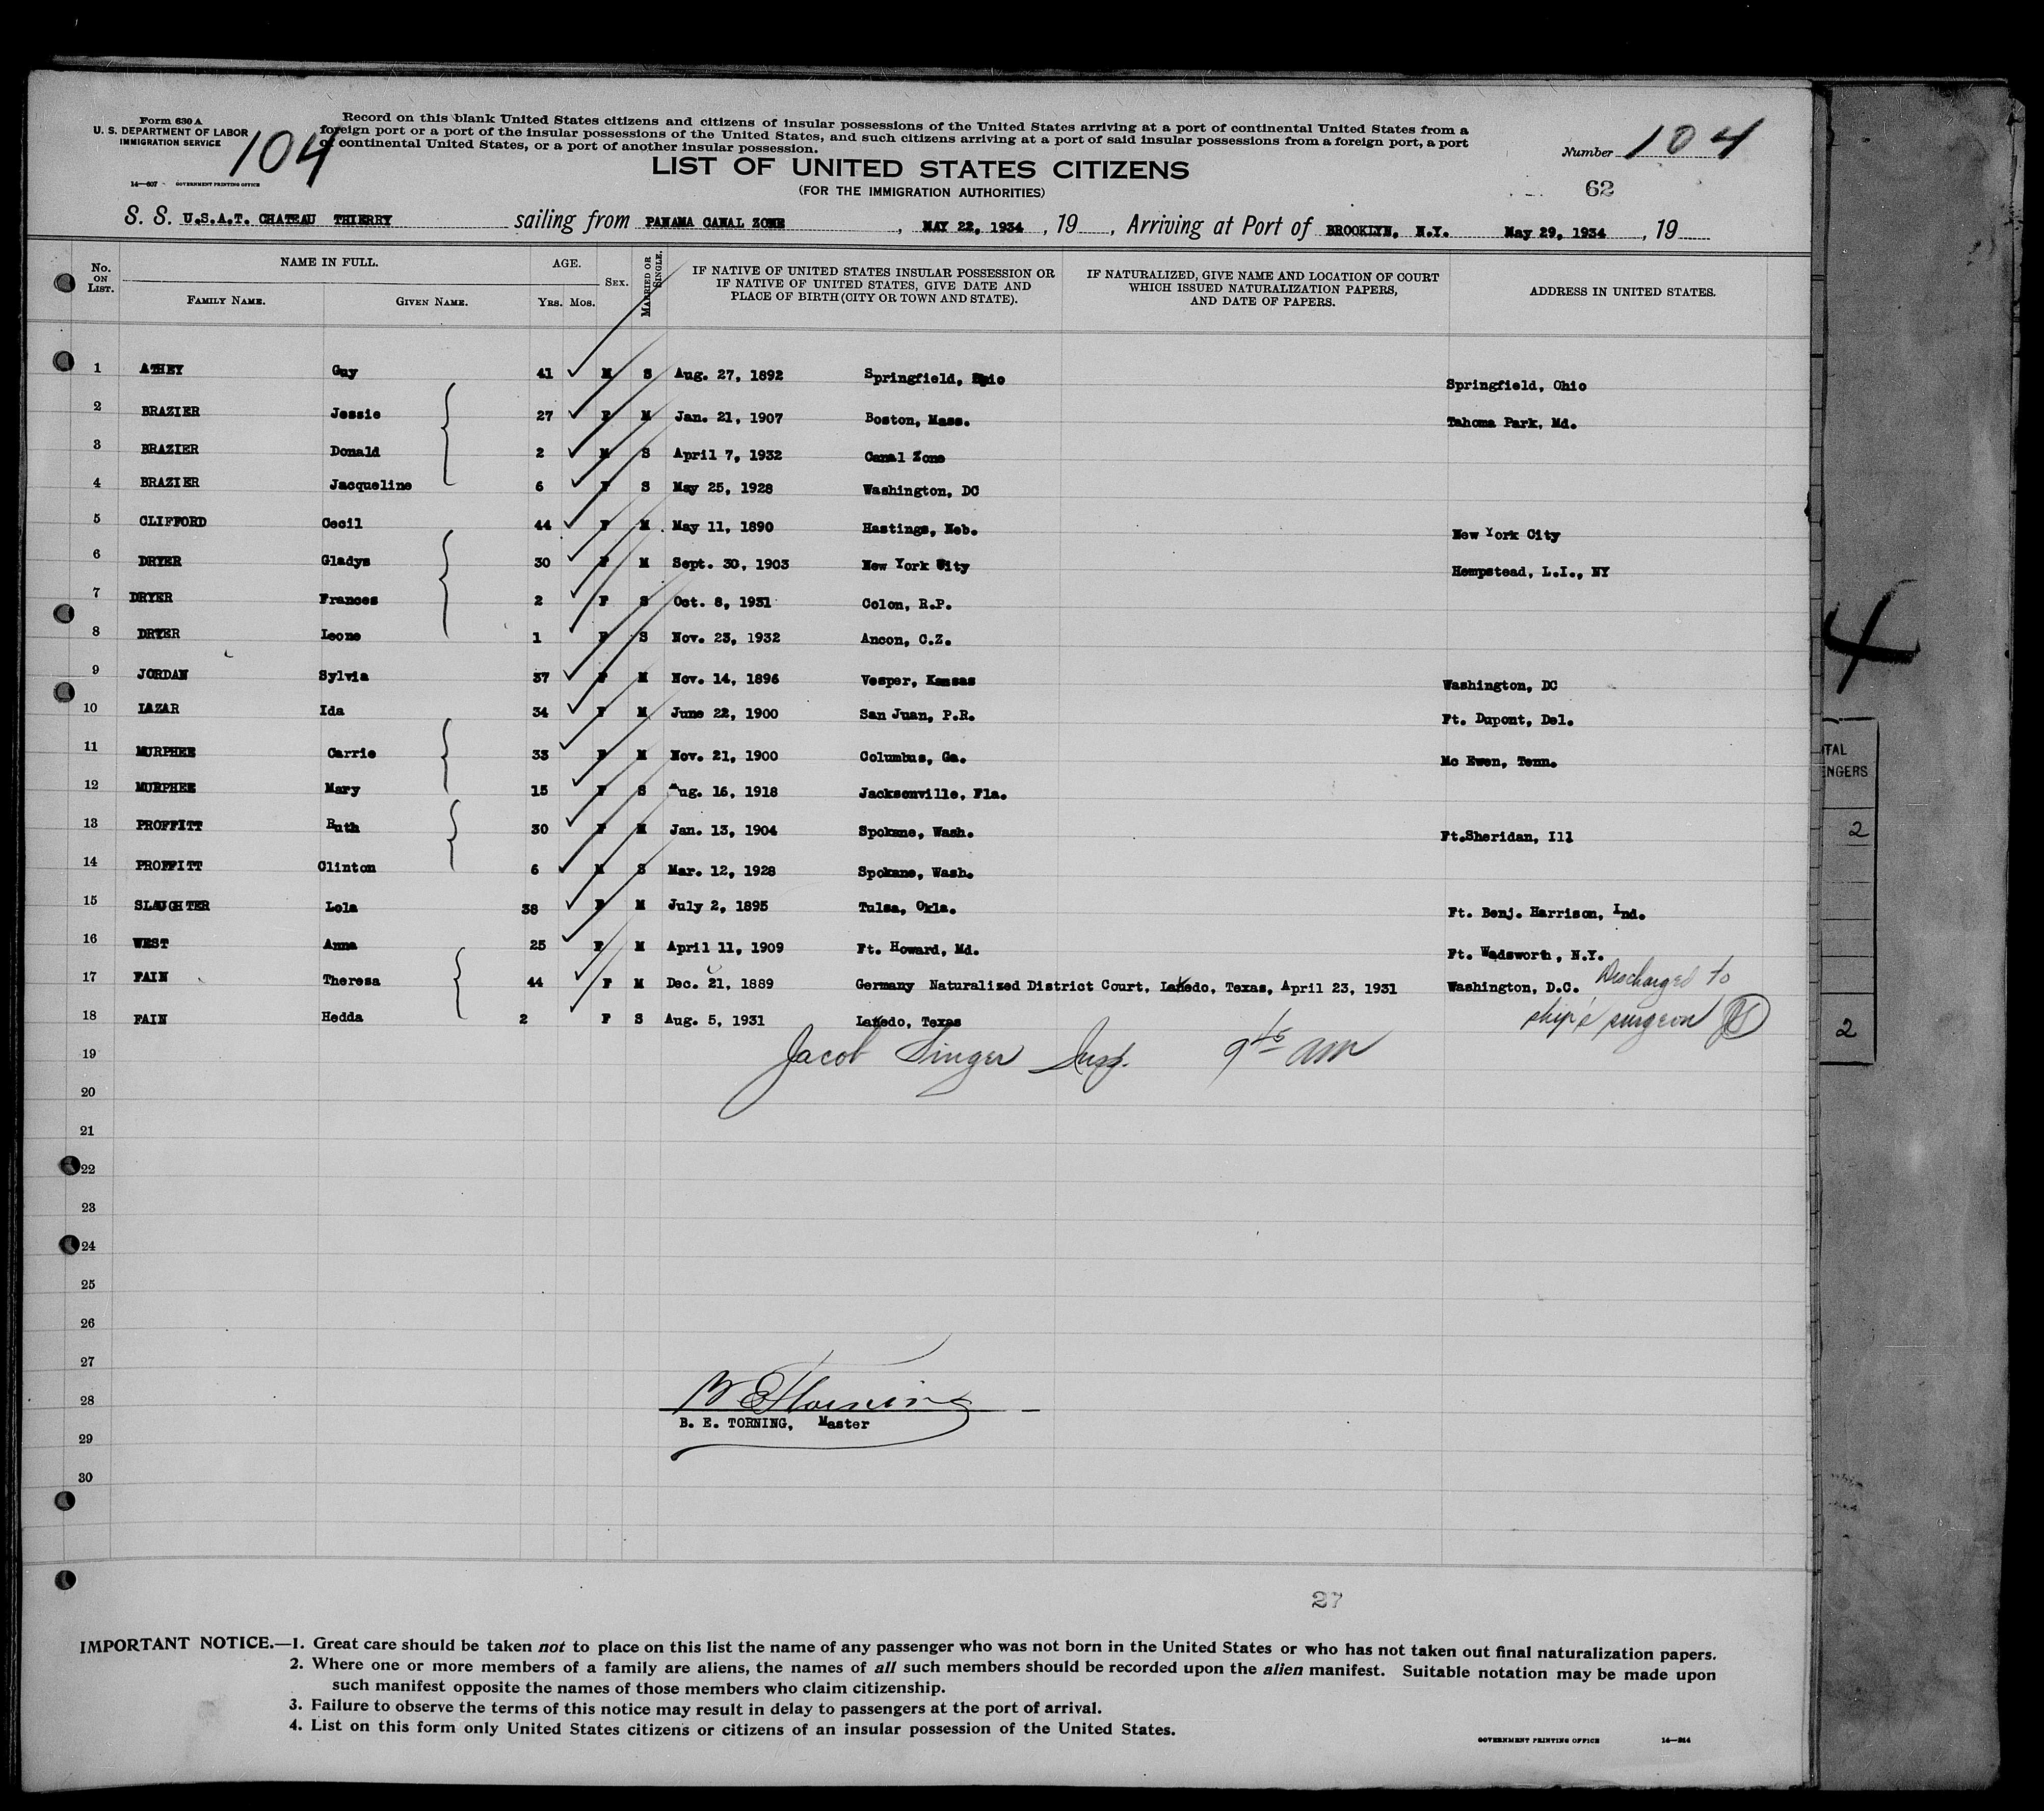 Form 630 A
U. S. DEPARTMENT OF LABOR
IMMIGRATION SERVICE
104
14—607 GOVERNMENT PRINTING OFFICE
Record on this blank United States citizens and citizens of insular possessions of the United States arriving at a port of continental United States from a
foreign port or a port of the insular possessions of the United States, and such citizens arriving at a port of said insular possessions from a foreign port, a port
of continental United States, or a port of another insular possession.
Number 104
LIST OF UNITED STATES CITIZENS
(FOR THE IMMIGRATION AUTHORITIES)
62
S. S. U.S.A.T. CHATEAU THIERRY sailing from PANAMA CANAL ZONE, MAY 22, 1934, 19, Arriving at Port of BROOKLYN, N.Y. May 29, 1934, 19
No. ON LIST.
NAME IN FULL.
FAMILY NAME. GIVEN NAME.
AGE.
YRS. MOS.
SEX.
MARRIED OR SINGLE.
IF NATIVE OF UNITED STATES INSULAR POSSESSION OR
IF NATIVE OF UNITED STATES, GIVE DATE AND
PLACE OF BIRTH (CITY OR TOWN AND STATE).
IF NATURALIZED, GIVE NAME AND LOCATION OF COURT
WHICH ISSUED NATURALIZATION PAPERS,
AND DATE OF PAPERS.
ADDRESS IN UNITED STATES.
1 ATHEY Guy 41 M S Aug. 27, 1892 Springfield, Ohio Springfield, Ohio
2 BRAZIER Jessie 27 F M Jan. 21, 1907 Boston, Mass. Tahoma Park, Md.
3 BRAZIER Donald 2 M S April 7, 1932 Canal Zone
4 BRAZIER Jacqueline 6 F S May 25, 1928 Washington, DC
5 CLIFFORD Cecil 44 F M May 11, 1890 Hastings, Neb. New York City
6 DRYER Gladys 30 F M Sept. 30, 1903 New York City Hempstead, L.I., NY
7 DRYER Frances 2 F S Oct. 8, 1931 Colon, R.P.
8 DRYER Leone 1 F S Nov. 23, 1932 Ancon, C.Z.
9 JORDAN Sylvia 37 F M Nov. 14, 1896 Vesper, Kansas Washington, DC
10 LAZAR Ida 34 F M June 22, 1900 San Juan, P.R. Ft. Dupont, Del.
11 MURPHEE Carrie 33 F M Nov. 21, 1900 Columbus, Ga. Mc Ewen, Tenn.
12 MURPHEE Mary 15 F S Aug. 16, 1918 Jacksonville, Fla.
13 PROFFITT Ruth 30 F M Jan. 13, 1904 Spokane, Wash. Ft.Sheridan, Ill
14 PROFFITT Clinton 6 M S Mar. 12, 1928 Spokane, Wash.
15 SLAUGHTER Lela 38 F M July 2, 1895 Tulsa, Okla. Ft. Benj. Harrison, Ind.
16 WEST Anna 25 F M April 11, 1909 Ft. Howard, Md. Ft. Wadsworth, N.Y.
17 FAIN Theresa 44 F M Dec. 21, 1889 Germany Naturalized District Court, Laredo, Texas, April 23, 1931 Washington, D.C. Discharged to
18 FAIN Hedda 2 F S Aug. 5, 1931 Laredo, Texas ship's surgeon JS
19 Jacob Singer Insp. 9 45 am
20
21
22
23
24
25
26
27
28
B. E. TORNING, Master
29
30
27
IMPORTANT NOTICE.—1. Great care should be taken not to place on this list the name of any passenger who was not born in the United States or who has not taken out final naturalization papers.
2. Where one or more members of a family are aliens, the names of all such members should be recorded upon the alien manifest. Suitable notation may be made upon
such manifest opposite the names of those members who claim citizenship.
3. Failure to observe the terms of this notice may result in delay to passengers at the port of arrival.
4. List on this form only United States citizens or citizens of an insular possession of the United States.
GOVERNMENT PRINTING OFFICE 14—214
4
TAL
ENGERS
2
2